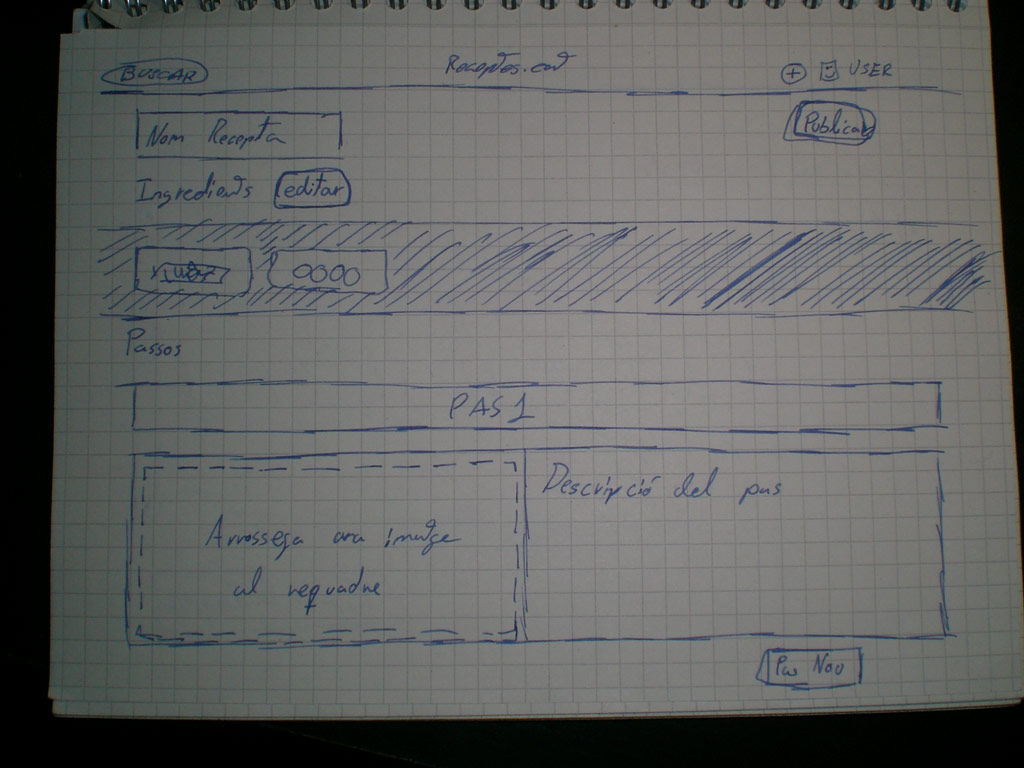 BUSCAR
Receptes.cat
USER
Nom Recepta
Publicar
Ingredients
editar
Passos
PAS 1
Arrossega una imatge
al requadre
Descripció del pas
Pas Nou